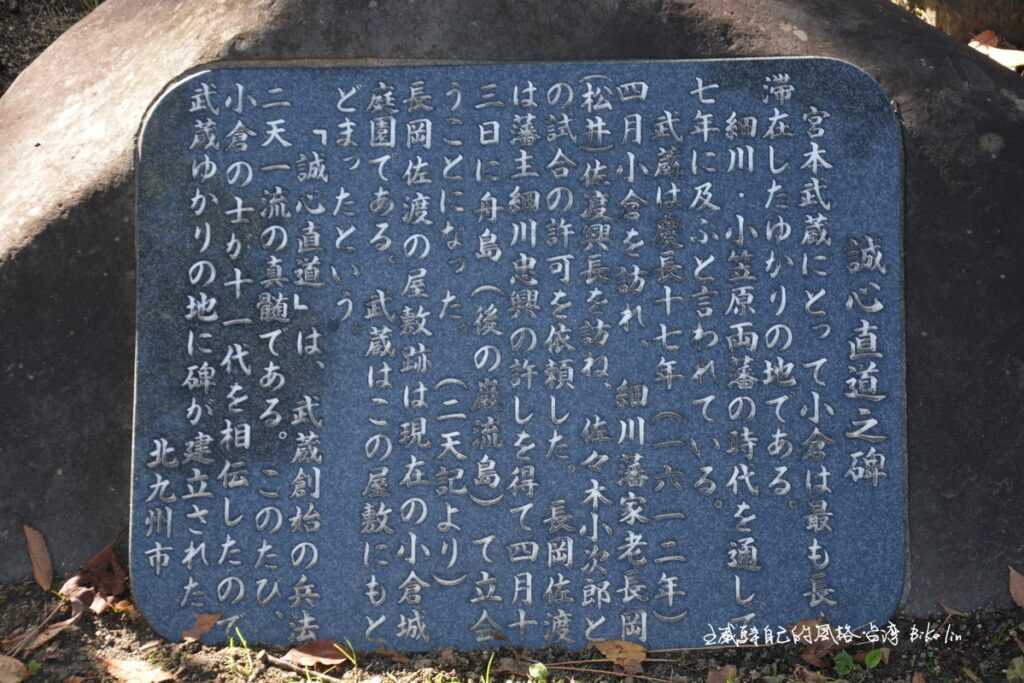 誠心直道之碑
宮本武蔵にとって小倉は最も長
滞在したゆかりの地である。
細川・小笠原両藩の時代を通して
七年に及ふと言われている。
武蔵は慶長十七年(一六一二年)
四月小倉を訪れ、細川藩家老長岡
(松井)佐渡興長を訪ね、佐々木小次郎と
の試合の許可を依頼した。長岡佐渡
は藩主細川忠興の許しを得て四月十
三日に舟島(後の巌流島)て立会
うことになった。(二天記より)
長岡佐渡の屋敷跡は現在の小倉城
庭園てある。武蔵はこの屋敷にもと
どまったという。
「誠心直道」は、武蔵創始の兵法
二天一流の真髄てある。このたひ、
小倉の士が十一代を相伝したのて
武蔵ゆかりの地に碑が建立された
北九州市
自己的風格 台湾 Biko lin